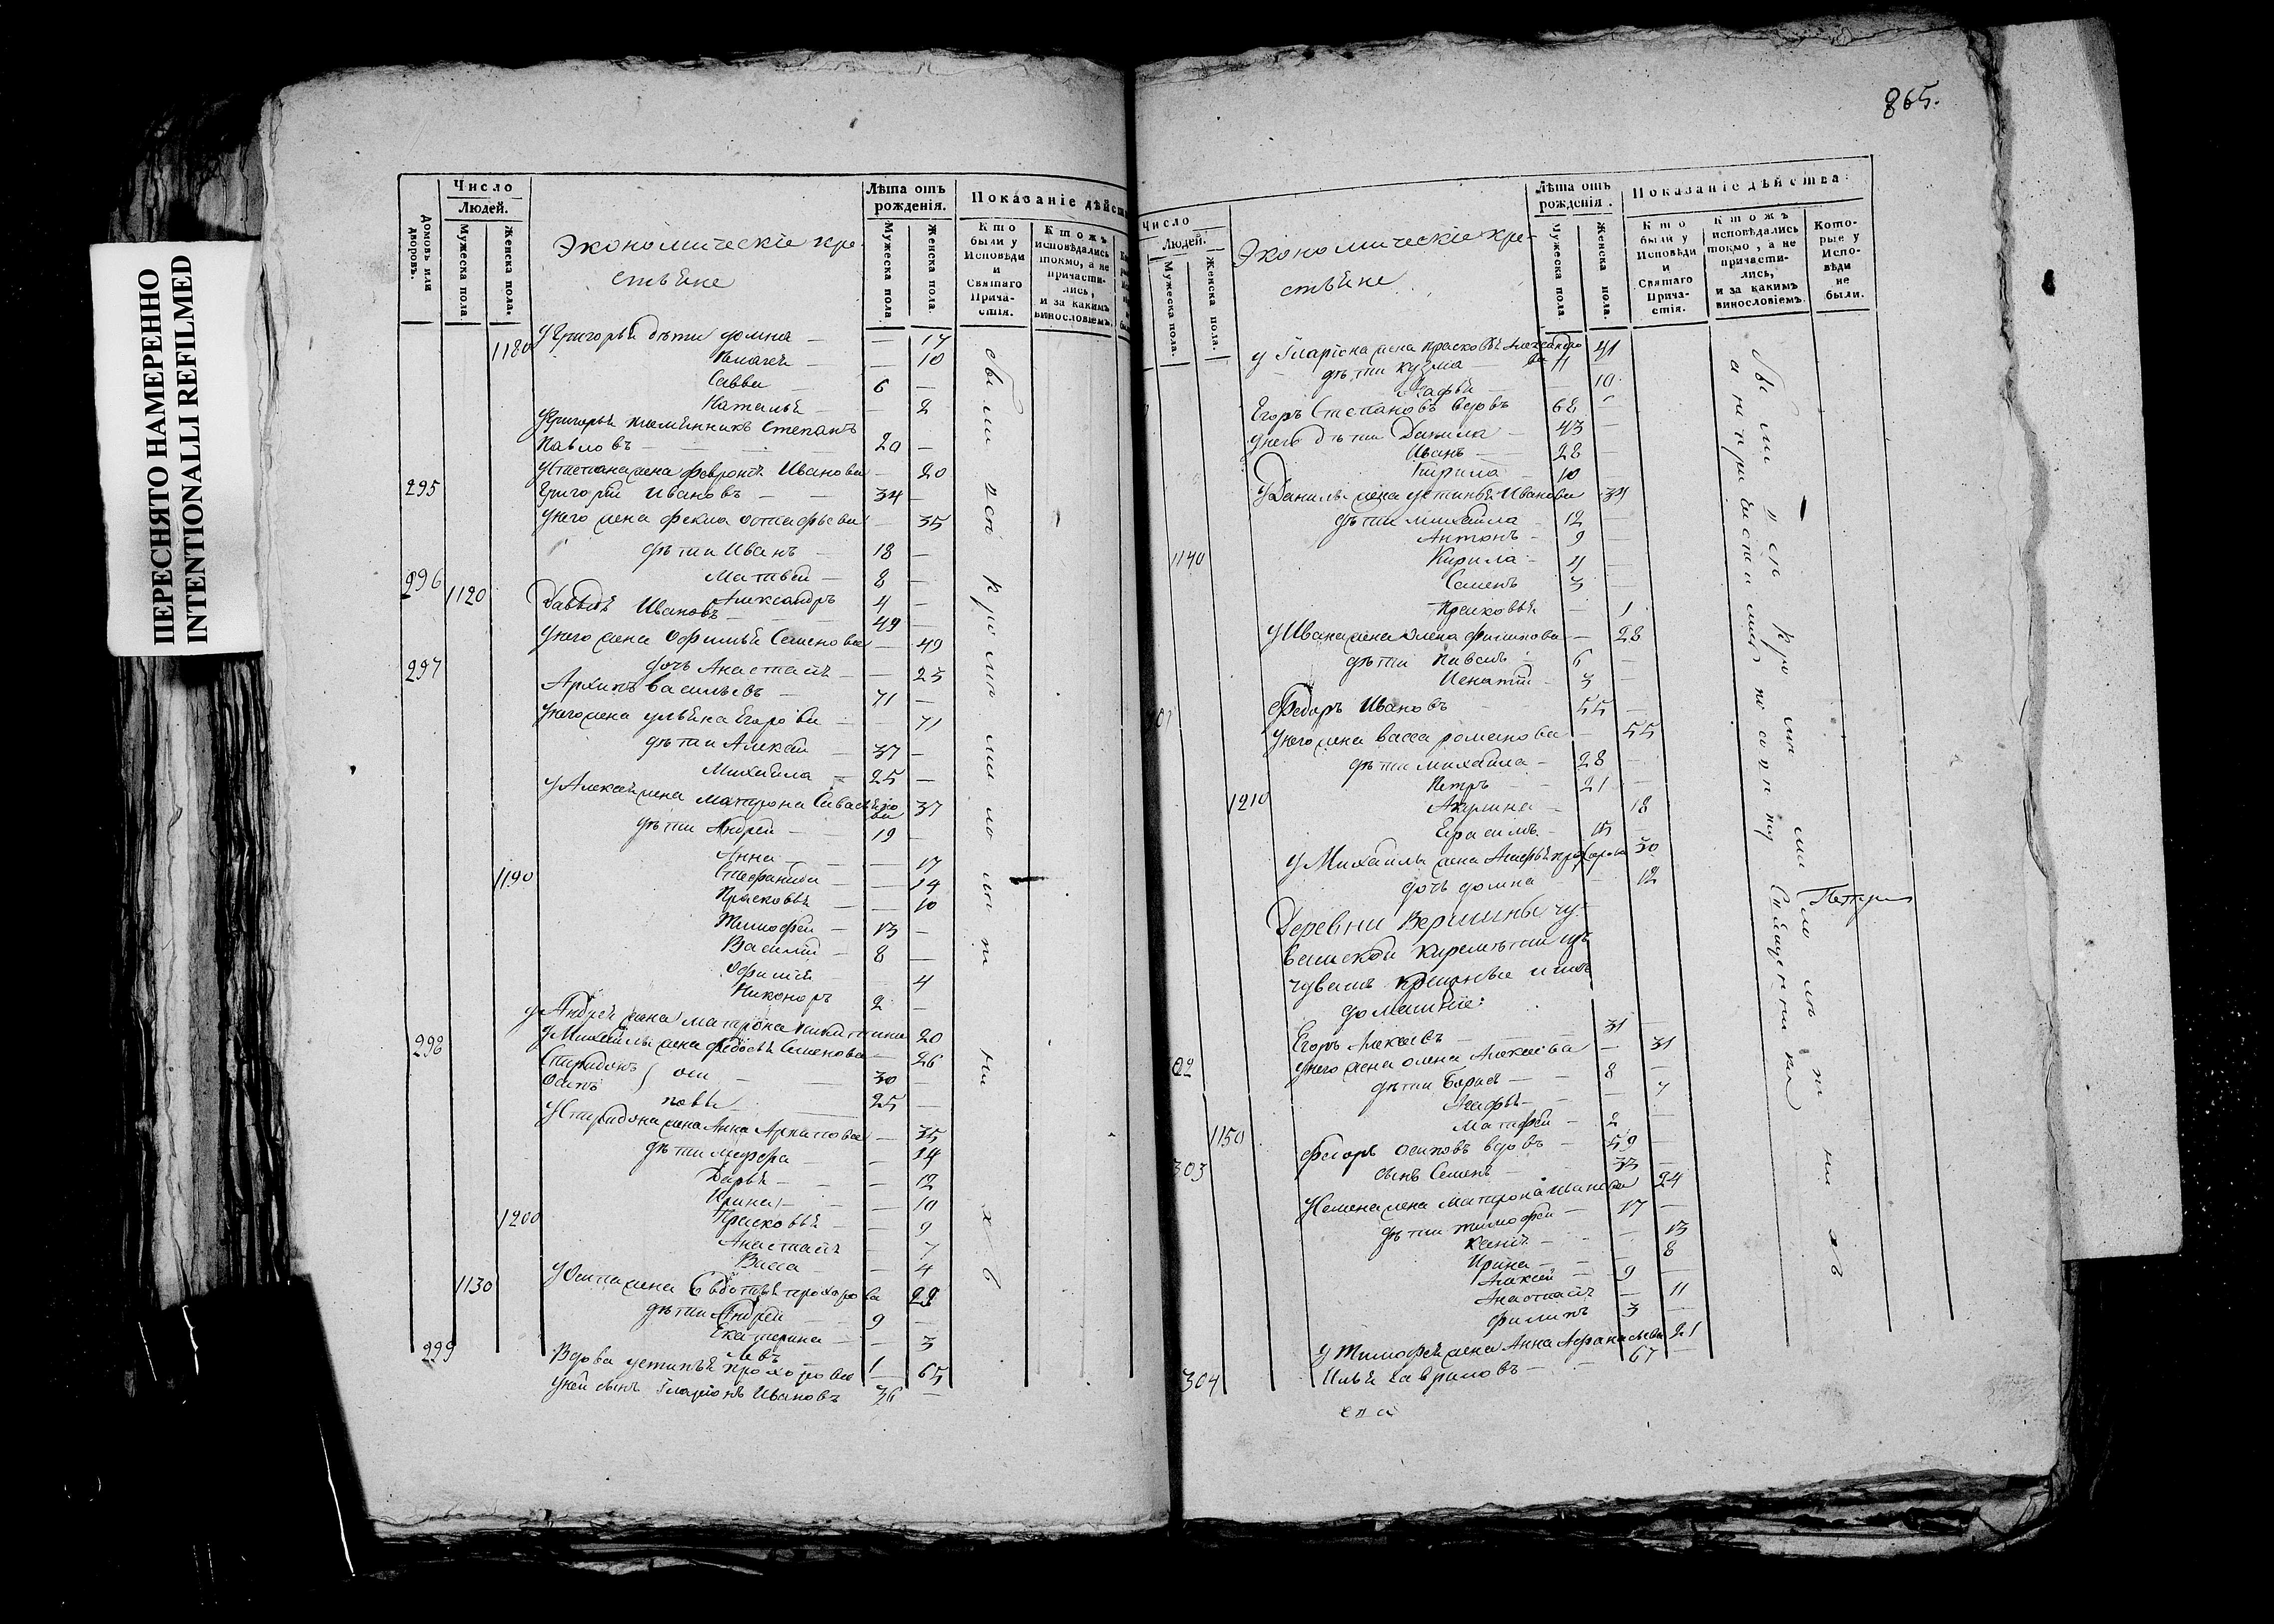 ПЕРЕСНЯТО НАМЕРЕННО
INTENTIONALLI REFILMED
Домовъ или дворовъ.
Число
Людей.
Мужеска пола
Женска пола.
Экономическіе кре-
стьяне
Лѣта отъ рожденія.
Мужеска пола
Женска пола.
Показаніе дѣйст
Кто были у Исповѣди и Святаго Прича-стія.
Ктожъ исповѣдались токмо, а не причасти-лись, и за какимъ винословіемъ.
1180 у Григорья дѣти домна — — 17
Пелагея — — 10
Савва — 6 —
Наталья — — 2
у Григорья племянникъ Степанъ
Павловъ — 20 —
у Степана жена февронья Иванова — 20
295 Григорій Ивановъ — 34 —
у него жена фекла остафьева — 35
дѣти Иванъ — 18 —
Матвей — 8 —
1120 Александръ 4 —
296 Давыдъ Ивановъ — 49 —
у него жена Офимья Семенова — 49
дочь Анастасія — — 23
297 Архипъ васильевъ — 71 —
у него жена ульяна Егорова — 71
дѣти Алексей — 37 —
Михайла — 25 —
у Алексея жена матрона Савельева 37
дѣти Андрей — 19 —
Анна — — 17
1190 Стефанида — — 14
Прасковья — — 10
Тимофей — 13 —
Василий — 8 —
Офимья — 4
Никоноръ 2 —
у Андрея жена матрона никитина 20
у Михайлы жена федосья Семенова — 26
298 Спиридонъ } оси — 30 —
Осипъ повы 25 —
у Спиридона жена Анна Архипова — 35
дѣти марфа — — 14
Дарья — — 12
Ирина — — 10
1200 Прасковья — — 9
Анастасія — 7
Васса — — 4
у Осипа жена Евдотья прохорова 28
1130 дѣти Андрей — 9 —
Екатерина — — 3
Левъ — 1 —
299 Вдова устинья прохорова — 65
у ней сынъ Иларіонъ Ивановъ 36 —
были у исп кромѣ мало лѣт ни хъ
865.
Число
Людей.
Мужеска пола.
Женска пола.
Экономическіе кре-
стьяне
Лѣта отъ рожденія.
Мужеска пола.
Женска пола.
Показаніе дѣйства
Кто были у Исповѣди и Святаго Прича-стія.
Ктожъ исповѣдались токмо, а не причасти-лись, и за какимъ винословіемъ.
Кото-рые у Испо-вѣди не были.
у Иларіона жена прасковья Александрова 41
дѣти кузма — 11 —
Агафья — — 10
Егоръ Степановъ вдовъ 68 —
у него дѣти Данила — 43 —
Иванъ — 28 —
Кирила — 10
у Данилы жена устинья Иванова 34
дѣти михайла — 12 —
Антонъ — 9 —
1140 Кирила — 4 —
Семенъ 3 —
Прасковья — 1
у Ивана жена олена филипова — 28
дѣти Павелъ — 6 —
Игнатій — 3 —
301 Федоръ Ивановъ 55 —
у него жена васса романова — 55
дѣти михайла — 28 —
Петръ — 21 —
1210 Акулина — 18
Герасимъ — 15 —
у Михайлы жена Агафья прохорова 30
дочь домна — 12
Деревни Вершины чу-
вашской киреметги изъ
чувашъ крещеныя и ихъ
домашніе:
Егоръ Алексеевъ — 31 —
302 у него жена олена Алексеева — 31
дѣти Борисъ — 8 —
Агафья — — 7
Матфей — 2
1150 Федоръ осиповъ вдовъ — 59 —
303 сынъ Семенъ — 33 —
у Семена жена матрона иванова 24
дѣти тимофей — 17 —
Ксенія — — 13
Ирина — — 8
Алексей — 9 —
Анастасія — 11
филипъ 3 —
у Тимофея жена Анна Афанасьева 21
304 Илья гавриловъ — 67 —
были у исп кромѣ мало лѣт ни хъ
а не причастились по совѣту Священника